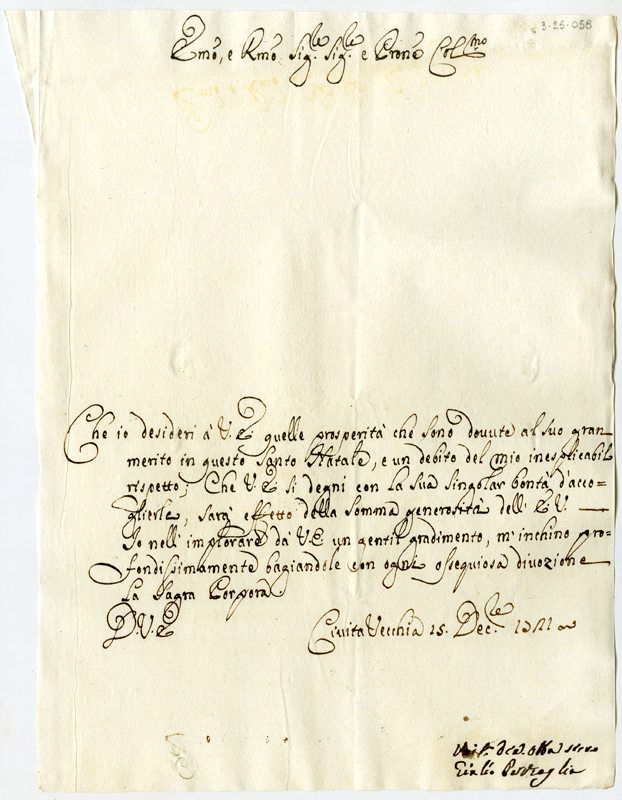 3-25-058
Emo, e Rmo Sig.le Sig.le e Prone Col.mo
Che io desideri à V. E. quelle prosperità che sono dovute al suo gran
merito in questo Santo Natale, e un debito del mio inesplicabil
rispetto; Che V. E. si degni con la sua singolar bontà d'acco=
glierle, sarà effetto della somma generosità dell' E. V.
Io nell' implorare dà V. E. un gentil gradimento, m' inchino pro=
fondissimamente bagiandole con ogni ossequiosa divozione
la Sagra Porpora
D. V. E.
Civita Vecchia 15. Dec.le
Giulio